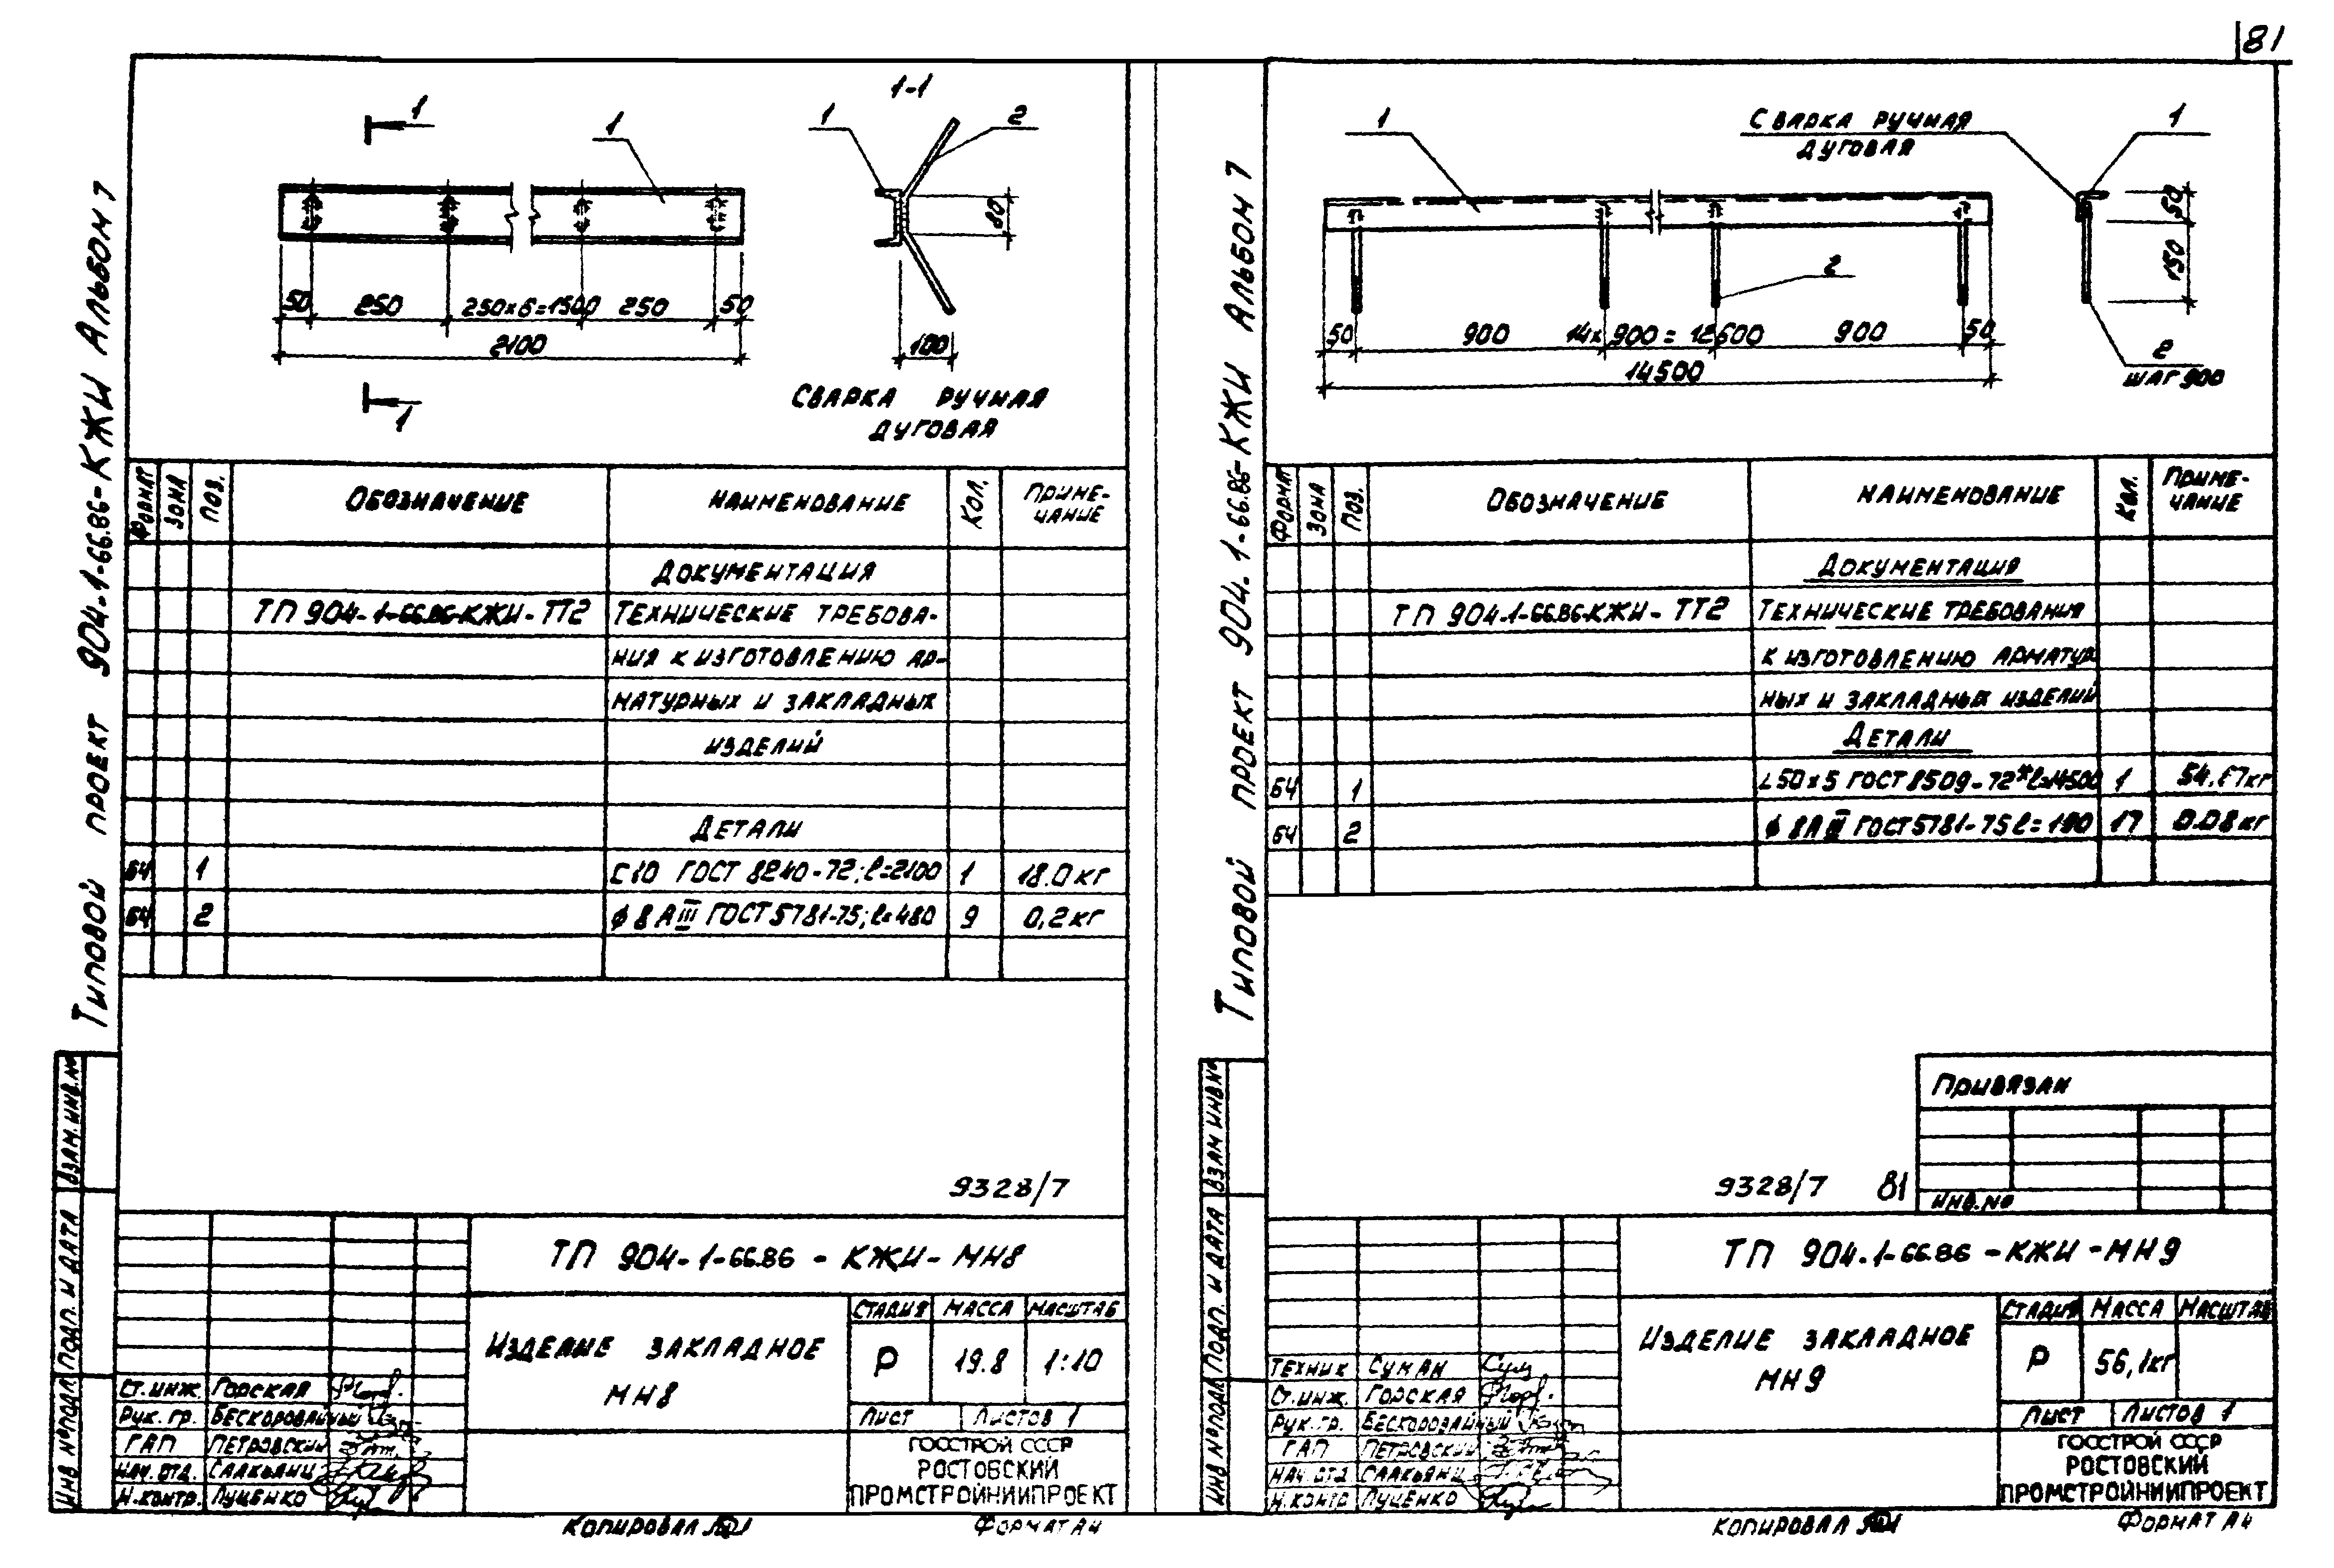 81
Типовой проект 904-1-66.86-КЖИ Альбом 7
1
1
1
1-1
1
2
80
50
250
250×6=1500
250
50
2100
100
Сварка ручная
дуговая
Формат
Зона
Поз.
Обозначение
Наименование
Кол.
Приме-
чание
Документация
ТП 904-1-66.86-КЖИ-ТТ2
Технические требова-
ния к изготовлению ар-
матурных и закладных
изделий
Детали
БЧ 1 С10 ГОСТ 8240-72; ℓ=2100 1 18.0 кг
БЧ 2 ϕ 8 АIII ГОСТ 5781-75; ℓ=480 9 0,2 кг
9328/7
Взам. инв. №
Подп. и дата
Инв № подл
ТП 904-1-66.86 - КЖИ - МН8
Изделие закладное
МН8
Стадия Масса Масштаб
Р 19.8 1:10
Лист Листов 1
Ст. инж. Горская
Рук. гр. Бескоровайный
ГАП Петровский
Нач. отд. Саакьянц
Н. контр. Луценко
ГОССТРОЙ СССР
РОСТОВСКИЙ
ПРОМСТРОЙНИИПРОЕКТ
Копировал
Формат А4
Типовой проект 904-1-66.86-КЖИ Альбом 7
1
Сварка ручная
дуговая
1
50
150
2
50
900
14×900=12600
900
50
14500
2
шаг 900
Формат
Зона
Поз.
Обозначение
Наименование
Кол.
Приме-
чание
Документация
ТП 904-1-66.86-КЖИ-ТТ2
Технические требования
к изготовлению арматур
ных и закладных изделий
Детали
БЧ 1 L50×5 ГОСТ 8509-72* ℓ=14500 1 54.67кг
БЧ 2 ϕ 8АIII ГОСТ 5781-75 ℓ=190 17 0.08 кг
Привязан
Инв. №
9328/7 81
Взам инв №
Подп. и дата
Инв № подл
ТП 904-1-66.86 - КЖИ - МН9
Изделие закладное
МН9
Стадия Масса Масштаб
Р 56,1кг
Лист Листов 1
Техник Суман
Ст. инж. Горская
Рук. гр. Бескоровайный
ГАП Петровский
Нач. отд Саакьянц
Н. контр Луценко
ГОССТРОЙ СССР
РОСТОВСКИЙ
ПРОМСТРОЙНИИПРОЕКТ
Копировал
Формат А4